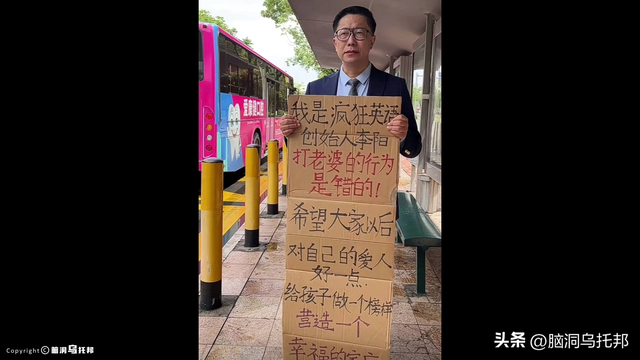 爱康健口腔
我是疯狂英语
创始人李阳
打老婆的行为
是错的!
希望大家以后
对自己的爱人
好一点.
给孩子做一个榜样
营造一个
幸福的家庭
Copyright © 脑洞乌托邦
头条 @脑洞乌托邦